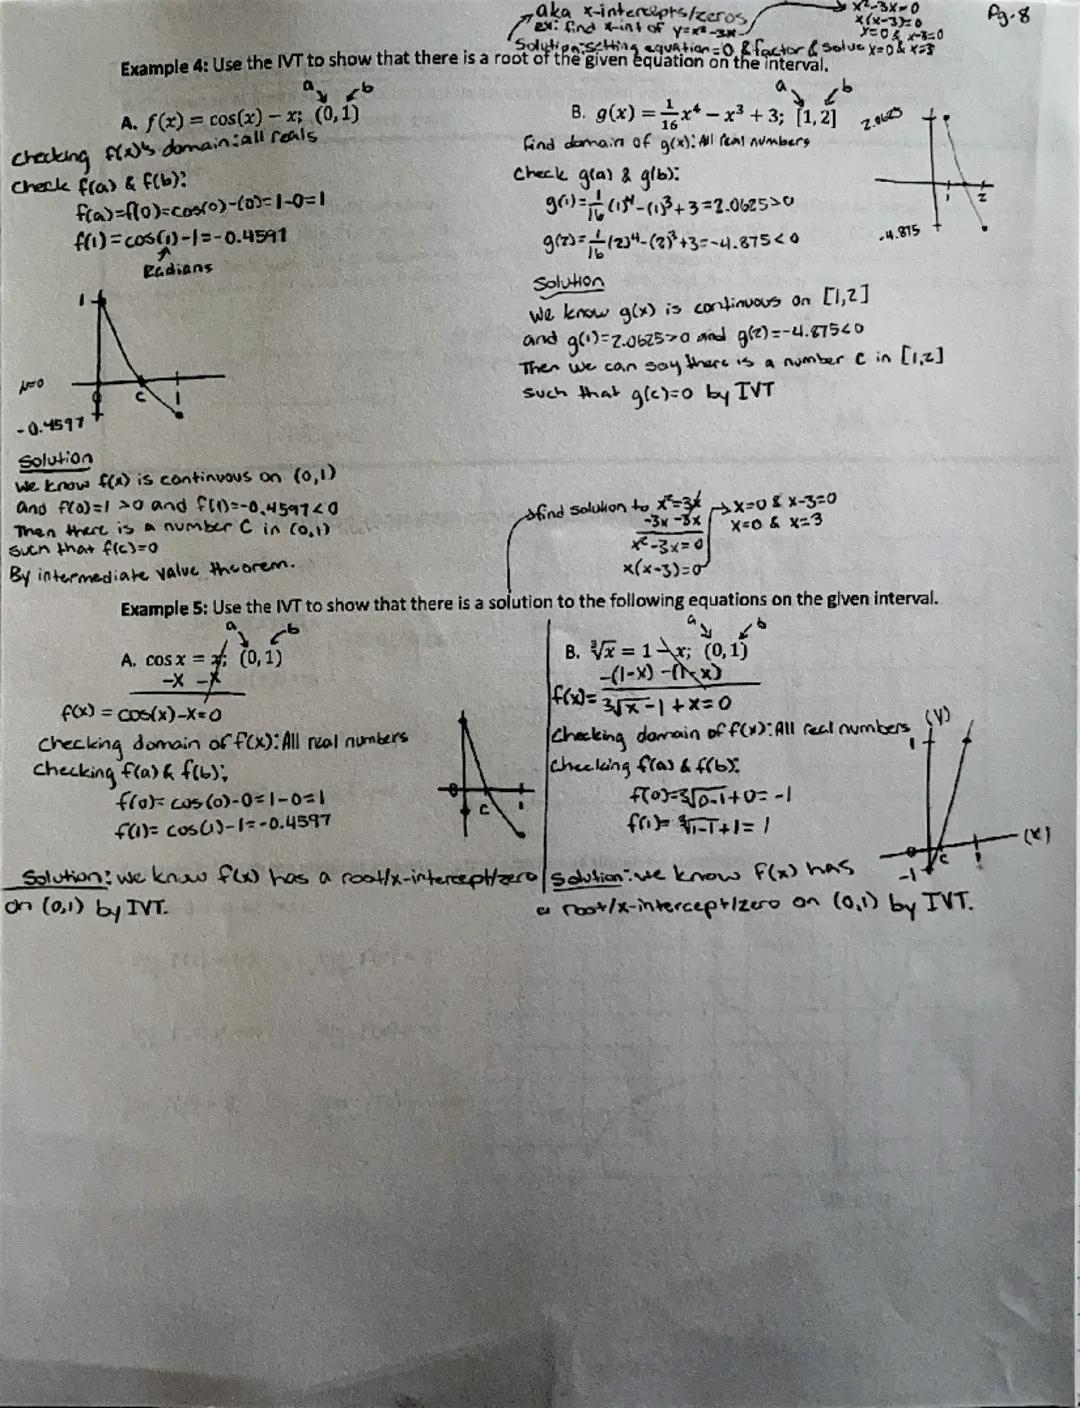 Pg. 8
aka x-intercepts/zeros
ex: find x-int of y=x²-3x
Solution: setting equation=0 & factor & solve
x²-3x=0
x(x-3)=0
x=0 & x-3=0
x=0 & x=3
Example 4: Use the IVT to show that there is a root of the given equation on the interval.
a b
A. f(x) = cos(x) − x; (0,1)
checking f(x)'s domain: all reals
check f(a) & f(b):
f(a)=f(0)=cos(0)-(0)=1-0=1
f(1)=cos(1)-1=-0.4597
Radians
1
N=0
0 c 1
-0.4597
Solution
we know f(x) is continuous on (0,1)
and f(0)=1>0 and f(1)=-0.4597<0
Then there is a number C in (0,1)
such that f(c)=0
By intermediate value theorem.
a b
B. g(x) = 1/16 x⁴ − x³ + 3; [1,2]
find domain of g(x): All real numbers
Check g(a) & g(b):
g(1)=1/16(1)⁴-(1)³+3=2.0625>0
g(2)=1/16(2)⁴-(2)³+3=-4.875<0
2.0625
1 2
-4.875
Solution
We know g(x) is continuous on [1,2]
and g(1)=2.0625>0 and g(2)=-4.875<0
Then we can say there is a number c in [1,2]
such that g(c)=0 by IVT
find solution to x²=3x
-3x -3x
x²-3x=0
x(x-3)=0
x=0 & x-3=0
x=0 & x=3
Example 5: Use the IVT to show that there is a solution to the following equations on the given interval.
a b
A. cos x = x; (0,1)
-x -x
f(x) = cos(x)-x=0
checking domain of f(x): All real numbers
checking f(a) & f(b):
f(0)= cos(0)-0=1-0=1
f(1)= cos(1)-1=-0.4597
0 c 1
Solution: we know f(x) has a root/x-intercept/zero
on (0,1) by IVT.
a b
B. ∛x = 1 − x; (0,1)
-(1-x) -(1-x)
f(x)= ∛x -1+x=0
Checking domain of f(x): All real numbers
Checking f(a) & f(b):
f(0)=∛0-1+0=-1
f(1)=∛1-1+1=1
(y)
1
(x)
0 c 1
-1
Solution: we know f(x) has
a root/x-intercept/zero on (0,1) by IVT.